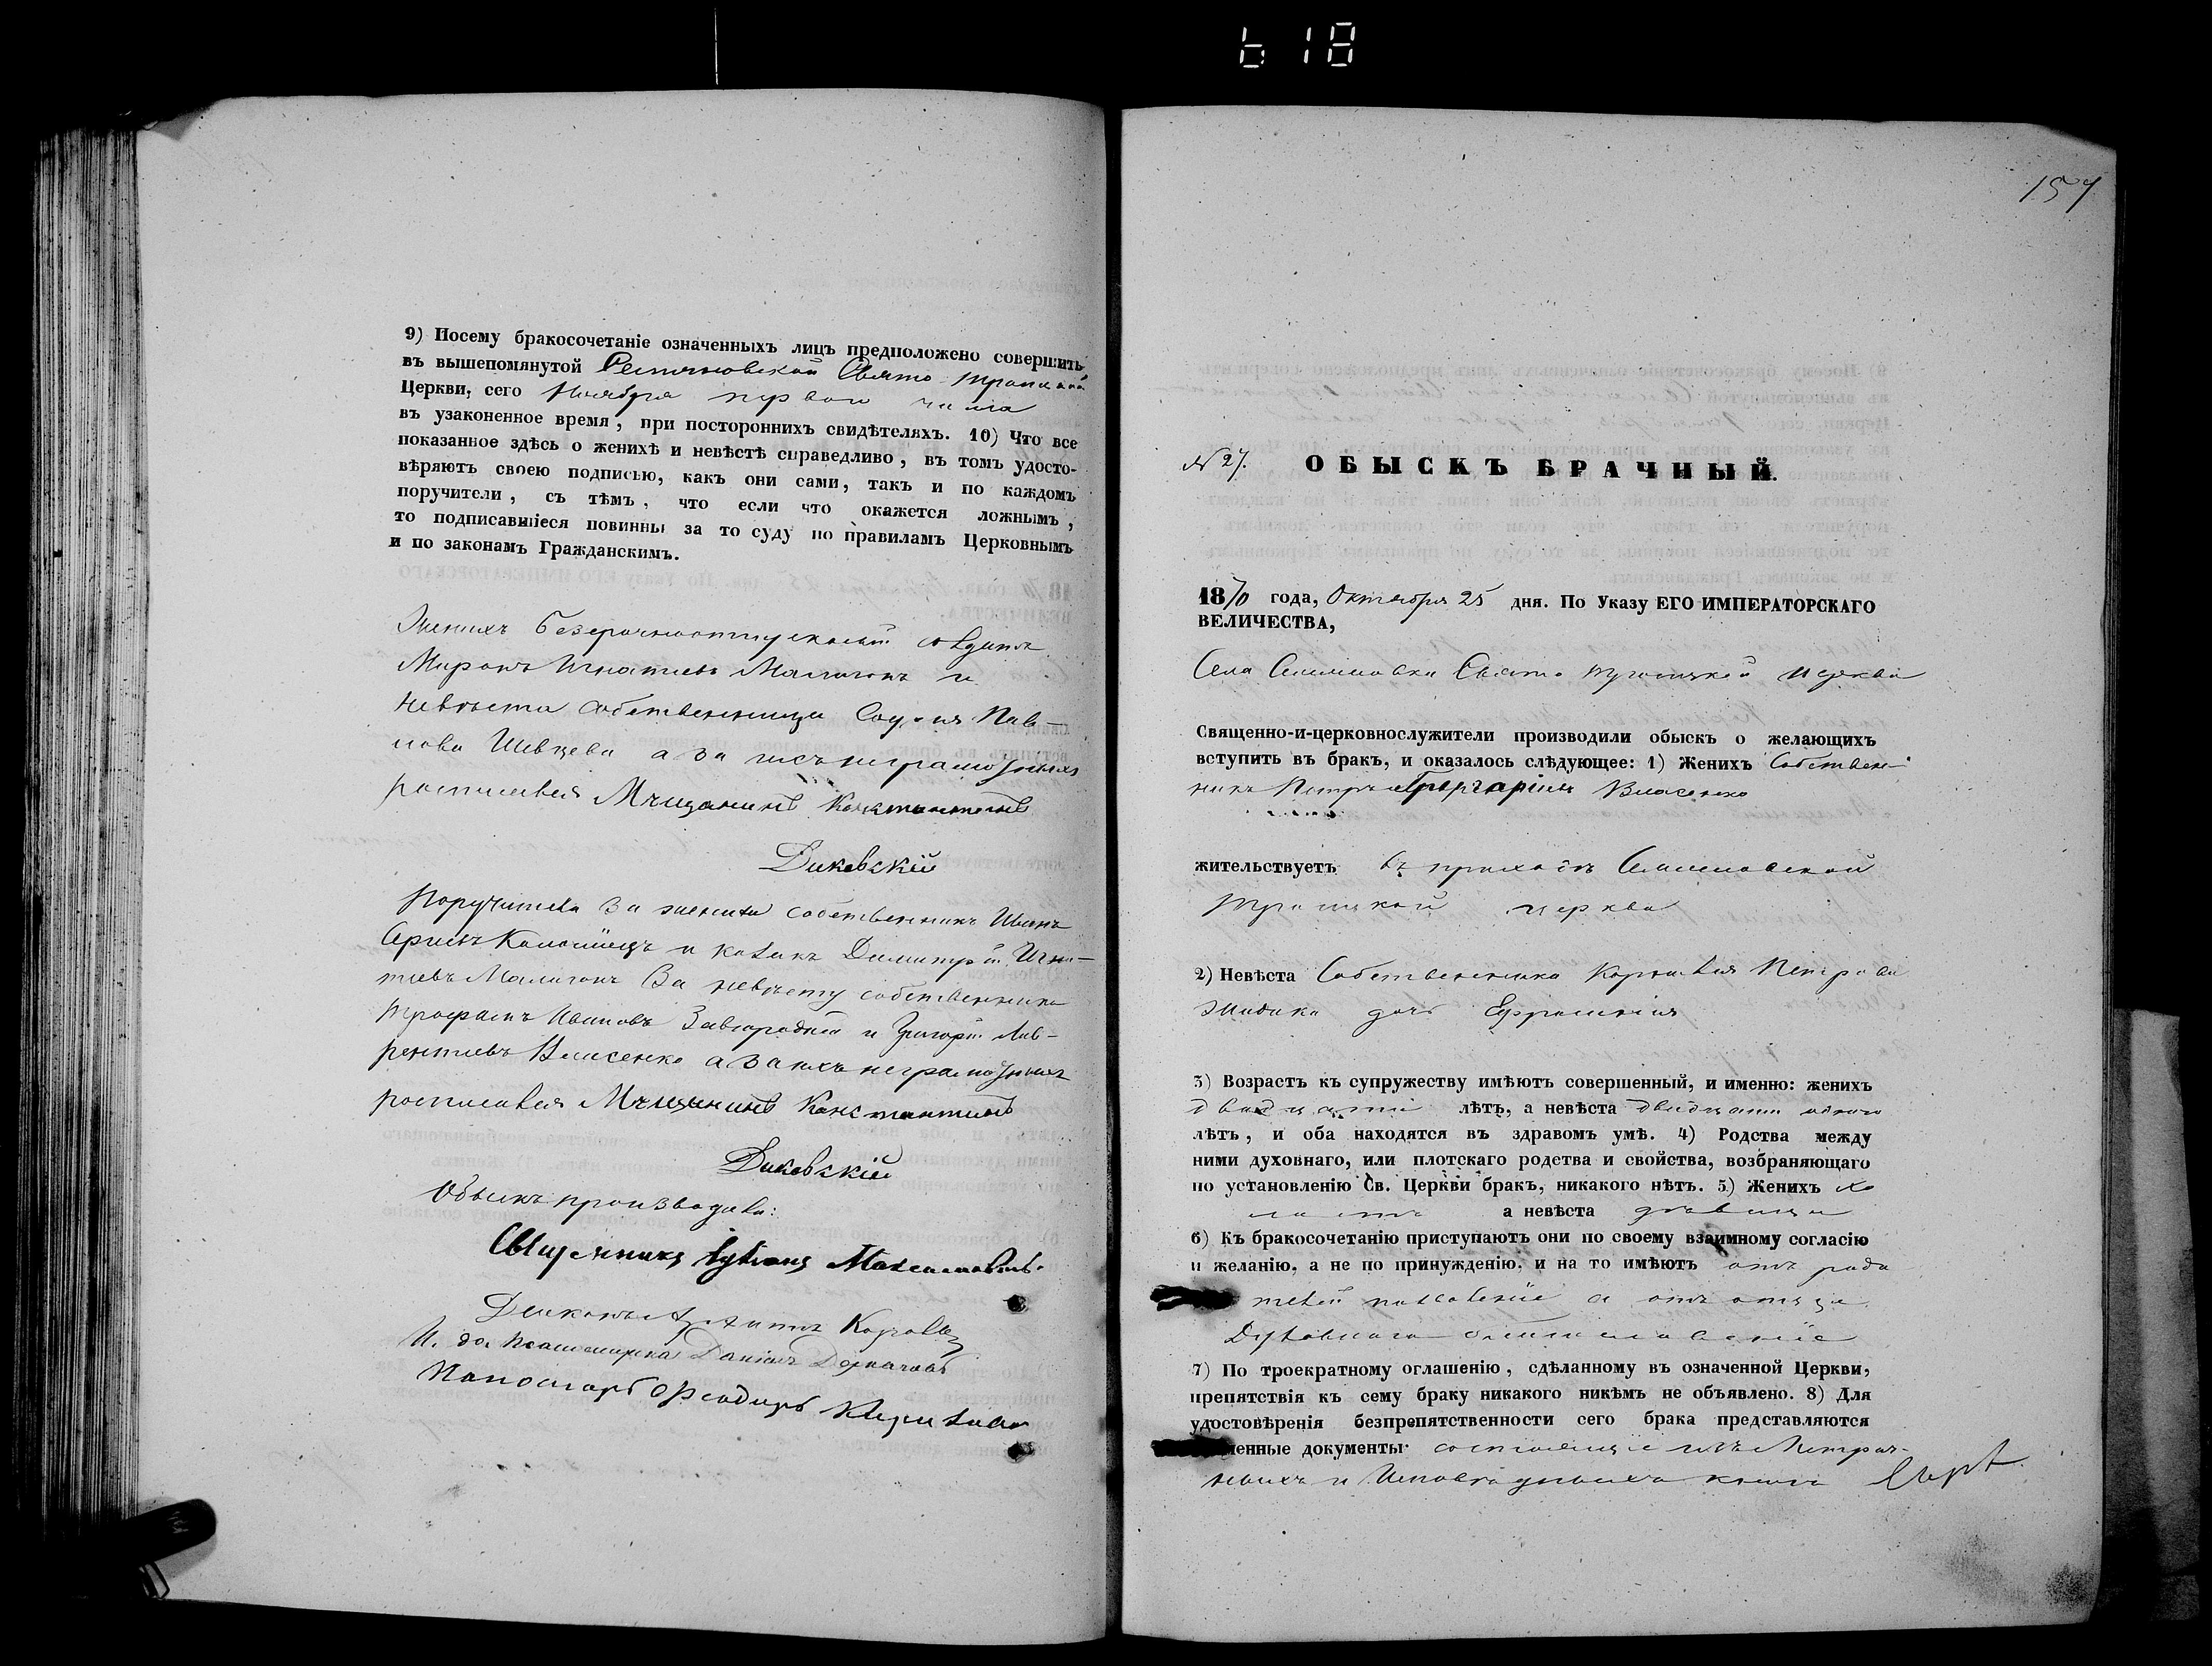 618
9) Посему бракосочетаніе означенныхъ лицъ предположено совершить
въ вышепомянутой Свято Троицкой
Церкви, сего Ноября первого числа
въ узаконенное время, при постороннихъ свидѣтеляхъ. 10) Что все
показанное здѣсь о женихѣ и невѣстѣ справедливо, въ томъ удосто-
вѣряютъ своею подписью, какъ они сами, такъ и по каждомъ
поручители, съ тѣмъ, что если что окажется ложнымъ,
то подписавшіеся повинны за то суду по правиламъ Церковнымъ
и по законамъ Гражданскимъ.
Женихъ
Миронъ Игнатіевъ Малигонъ и
невѣста собственница Пав-
лова Шевцева а за ихъ неграмотныхъ
росписался Мѣщанинъ Константинъ
Диковскій
Поручители за жениха собственникъ Иванъ
и козакъ Димитрій Игна-
тіевъ Малигонъ За невѣсту собственники
Трофимъ Ивановъ Завгородній и Григорій Лав-
рентіевъ Власенко а за ихъ неграмотныхъ
росписался Мѣщанинъ Константинъ
Диковскій
Обыскъ производили:
Священникъ Максимовичъ
Діаконъ
И. до. Псаломщика Даніилъ
Пономарь Феодоръ
157
№ 27. ОБЫСКЪ БРАЧНЫЙ.
1870 года, Октября 25 дня. По Указу ЕГО ИМПЕРАТОРСКАГО
ВЕЛИЧЕСТВА,
Села Свято Троицкой церкви
Священно-и-церковнослужители производили обыскъ о желающихъ
вступить въ бракъ, и оказалось слѣдующее: 1) Женихъ Собствен
никъ Петръ Власенко
жительствуетъ въ приходѣ
Троицкой церкви
2) Невѣста Собственника Корнилія Петрова
дочь Ефросинія
3) Возрастъ къ супружеству имѣютъ совершенный, и именно: женихъ
двадцати лѣтъ, а невѣста двадцати одного
лѣтъ, и оба находятся въ здравомъ умѣ. 4) Родства между
ними духовнаго, или плотскаго родства и свойства, возбраняющаго
по установленію Св. Церкви бракъ, никакого нѣтъ. 5) Женихъ хо
лостъ а невѣста дѣвица
6) Къ бракосочетанію приступаютъ они по своему взаимному согласію
и желанію, а не по принужденію, и на то имѣютъ отъ роди
телей позволеніе а отъ отца
Духовнаго благословеніе
7) По троекратному оглашенію, сдѣланному въ означенной Церкви,
препятствія къ сему браку никакого никѣмъ не объявлено. 8) Для
удостовѣренія безпрепятственности сего брака представляются
менные документы: состоящіе изъ Метрич-
ныхъ и Исповѣдныхъ книгъ